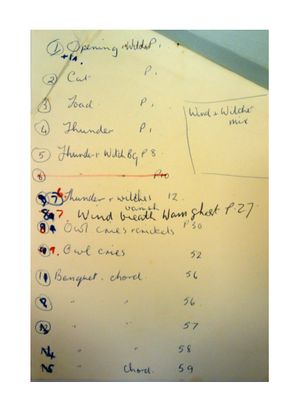 ① Opening + Witches P 1
+ 1A
② Cat P 1
③ Toad P 1
④ Thunder P 1
Wind & Witches
mix
⑤ Thunder + Witch BG P 8
⑥ P10
6 Thunder + witches 12
vanish
7. Wind breath Wam ghost P 27
8 Owl cries + crickets P 50
9. Owl cries 52
Banquet. chord. 56
" " 56
" " 57
" " 58
" chord. 59